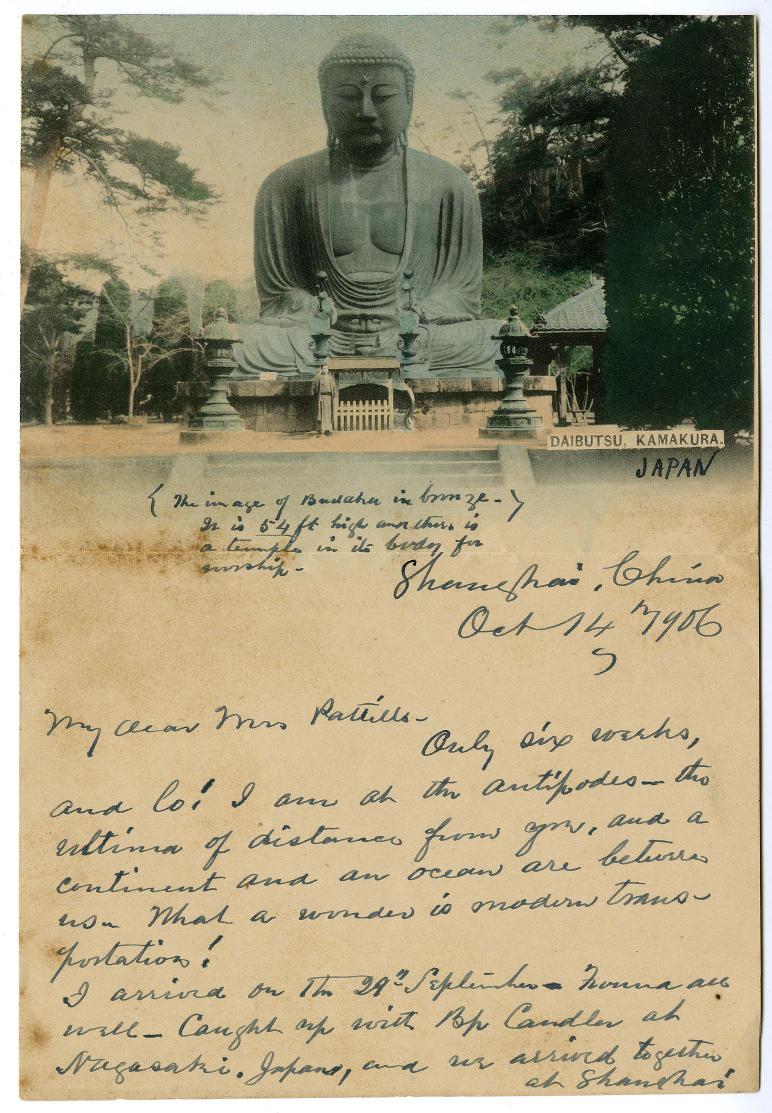 DAIBUTSU, KAMAKURA.
JAPAN
{ The image of Buddha in bronze. }
It is 54 ft high and there is
a temple in its body for
worship -
Shanghai, China
Oct 14th 1906
My dear Mrs Pattillo -
Only six weeks,
and lo! I am at the antipodes - the
ultima of distance from you, and a
continent and an ocean are between
us - What a wonder is modern trans-
portation!
I arrived on the 29th September - Found all
well - Caught up with Bp Candler at
Nagasaki, Japan, and we arrived together
at Shanghai